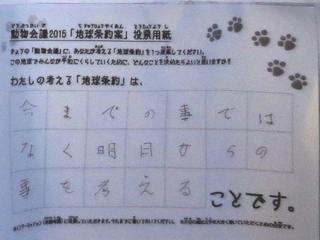 動物会議2015「地球条約案」投票用紙
きょうの「動物会議」に、あなたが考える「地球条約」を1つ提案してください。
この地球でみんなが平和にくらしていくために、どんなことを決めたらよいと思いますか?
わたしの考える「地球条約」は、
今までの事では
なく明日からの
事を考える
ことです。